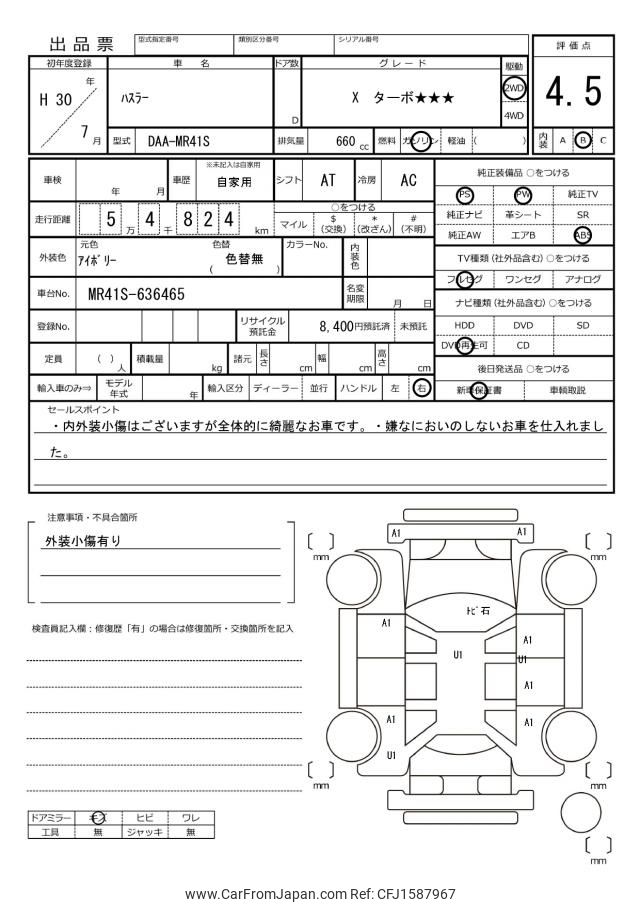 出品票 型式指定番号 類別区分番号 シリアル番号 評価点
初年度登録 車名 ドア数 グレード 駆動
H 30 年 ﾊｽﾗｰ X ターボ★★★ 2WD 4.5
7 月 D 4WD
型式 DAA-MR41S 排気量 660 cc 燃料 ガソリン 軽油 ( ) 内装 A B C
車検 年 月 車歴 ※未記入は自家用 自家用 シフト AT 冷房 AC 純正装備品 ○をつける
PS PW 純正TV
走行距離 5 万 4 千 8 2 4 km ○をつける
マイル $ (交換) * (改ざん) # (不明)
純正ナビ 革シート SR
純正AW エアB ABS
外装色 元色 ｱｲﾎﾞﾘｰ 色替 ( 色替無 ) カラーNo. 内装色
TV種類 (社外品含む) ○をつける
フルセグ ワンセグ アナログ
車台No. MR41S-636465 名変期限 月 日
ナビ種類 (社外品含む) ○をつける
登録No. リサイクル預託金 8,400円預託済 未預託
HDD DVD SD
DVD再生可 CD
定員 ( ) 人 積載量 kg 諸元 長さ cm 幅 cm 高さ cm
後日発送品 ○をつける
輸入車のみ⇒ モデル年式 年 輸入区分 ディーラー 並行 ハンドル 左 右
新車保証書 車輌取説
セールスポイント
・内外装小傷はございますが全体的に綺麗なお車です。・嫌なにおいのしないお車を仕入れまし
た。
注意事項・不具合箇所
外装小傷有り
検査員記入欄：修復歴「有」の場合は修復箇所・交換箇所を記入
A1 A1
mm mm
ﾄﾋﾞ石
A1 A1
U1 U1
A1
A1 A1
U1
mm mm
mm
ドアミラー キズ ヒビ ワレ
工具 無 ジャッキ 無
www.CarFromJapan.com Ref: CFJ1587967